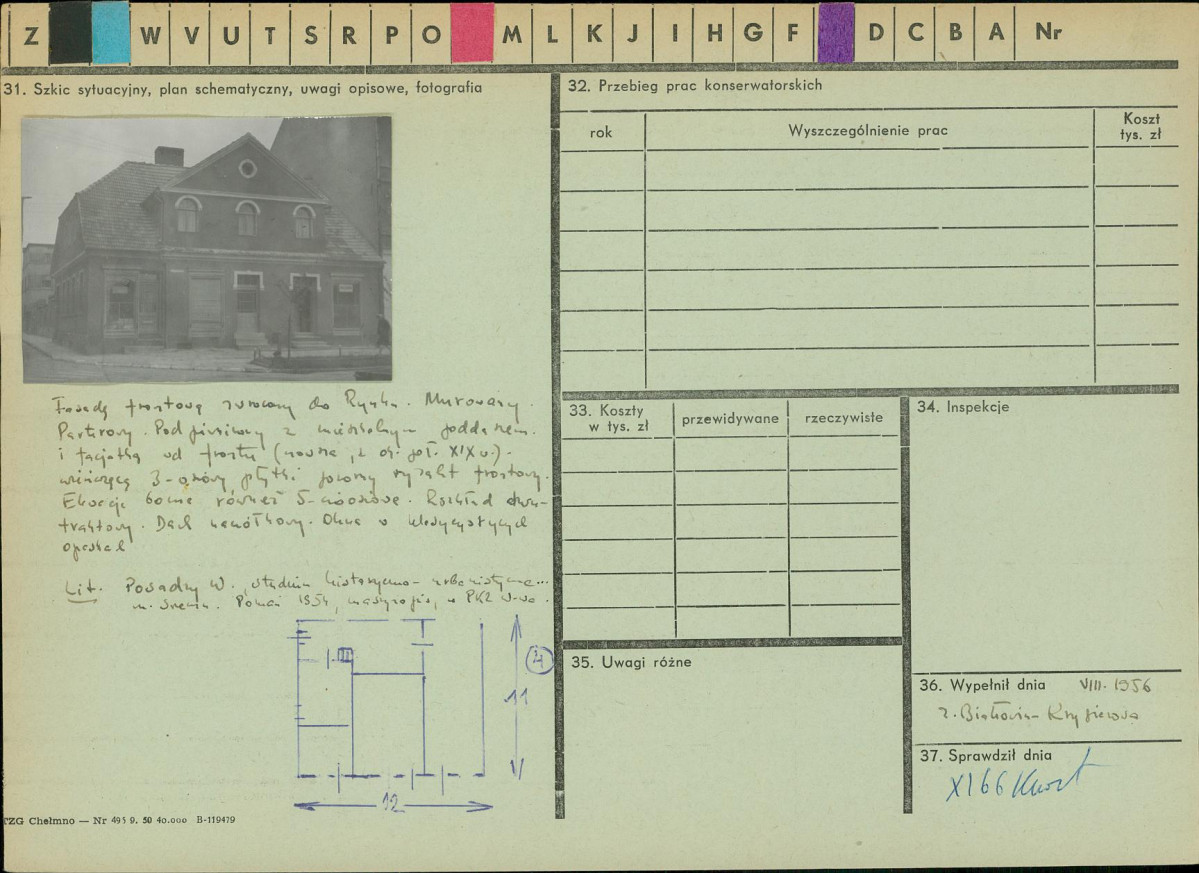 Z W V U T S R P O M L K J I H G F D C B A Nr
31. Szkic sytuacyjny, plan schematyczny, uwagi opisowe, fotografia
Fasadą frontową zwrócony do Rynku. Murowany.
Parterowy. Podpiwniczony z mieszkalnym poddaszem
i facjatką od frontu (XIX w.)
wieńczącą 3-osiowy płytki pozorny ryzalit frontowy.
Elewacje boczne również 5-cioosiowe. Rozkład dwu-
traktowy. Dach naczółkowy. Okna w klasycystycznych
opaskach
Lit. Posadzy W., studium historyczno-urbanistyczne...
m. Śrem. Poznań 1954, maszynopis, w PKZ
4
11
12
TZG Chełmno — Nr 495 9. 50 40.000 B-119479
32. Przebieg prac konserwatorskich
rok Wyszczególnienie prac Koszt tys. zł
33. Koszty w tys. zł przewidywane rzeczywiste
34. Inspekcje
35. Uwagi różne
36. Wypełnił dnia VIII. 1956
37. Sprawdził dnia
XI 66